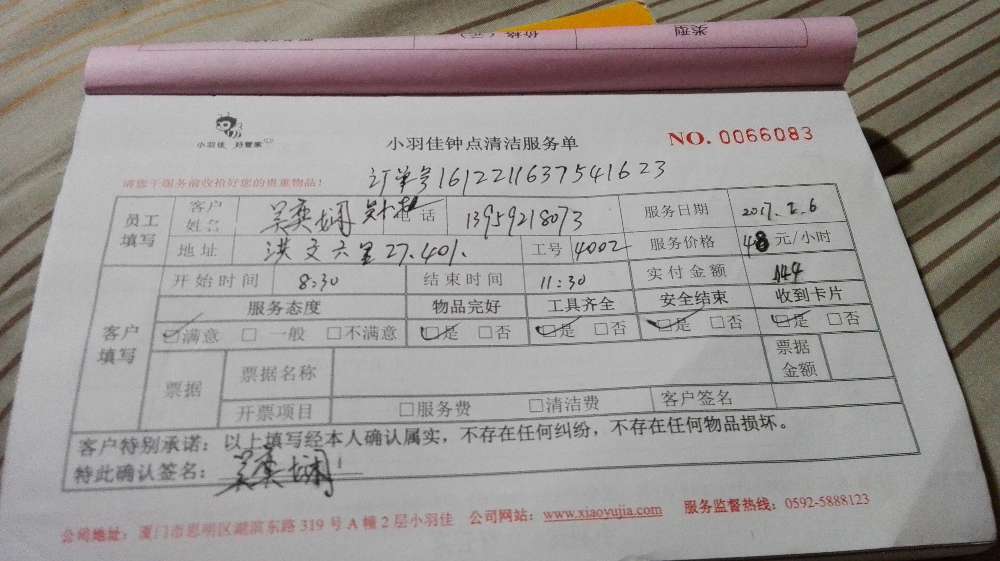 类型
价格（元）
小羽佳 好管家
小羽佳钟点清洁服务单
NO. 0066083
请您于服务前收拾好您的贵重物品！
订单号161221163754 1623
员工填写 客户姓名 吴奕娴 电话 13959218073 服务日期 2017.2.6
地址 洪文六里27.401. 工号 4002 服务价格 48 元/小时
客户填写 开始时间 8:30 结束时间 11:30 实付金额 144
服务态度 物品完好 工具齐全 安全结束 收到卡片
☑满意 □ 一般 □不满意 ☑是 □否 ☑是 □否 ☑是 □否 ☑是 □否
票据 票据名称 票据金额
开票项目 □服务费 □清洁费 客户签名
客户特别承诺：以上填写经本人确认属实，不存在任何纠纷，不存在任何物品损坏。
特此确认签名：吴奕娴
公司地址：厦门市思明区湖滨东路 319 号 A 幢 2 层小羽佳 公司网站：www.xiaoyujia.com 服务监督热线：0592-5888123